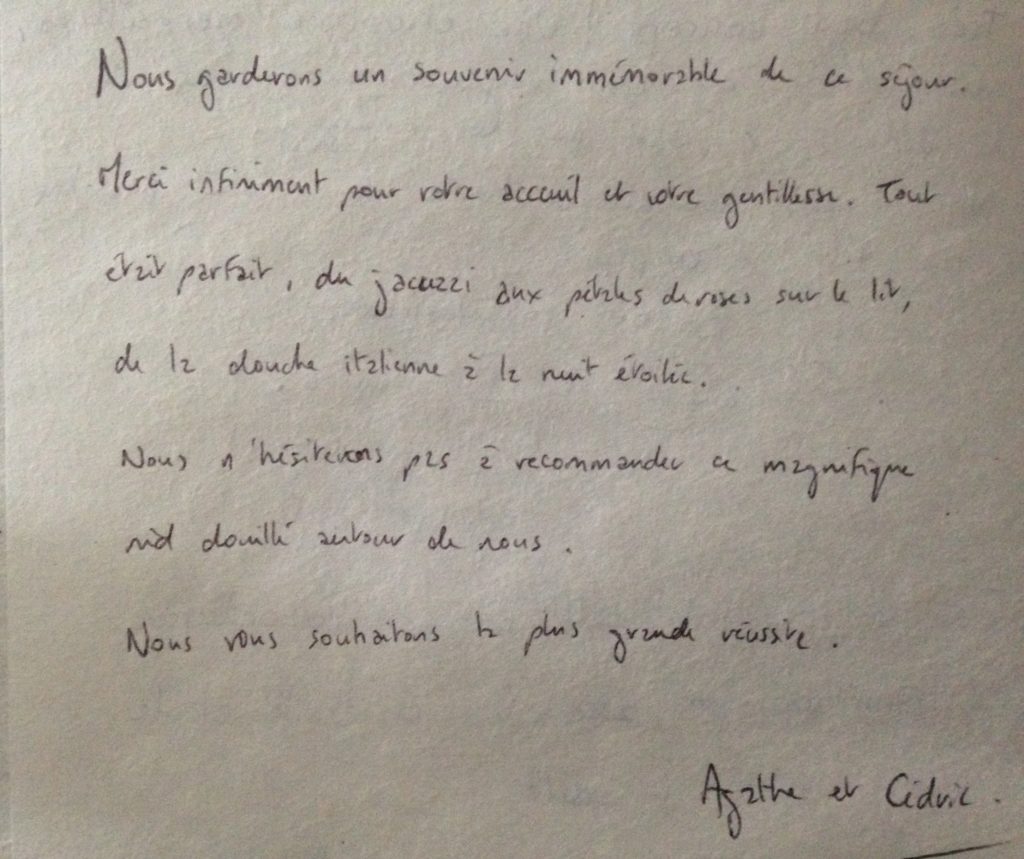 Nous garderons un souvenir immémorable de ce séjour.
Merci infiniment pour votre acceuil et votre gentillesse. Tout
était parfait, du jacuzzi aux pétales de roses sur le lit,
de la douche italienne à la nuit étoilée.
Nous n'hésiterons pas à recommander ce magnifique
nid douillé autour de nous.
Nous vous souhaitons la plus grande réussite.
Agathe et Cédric.